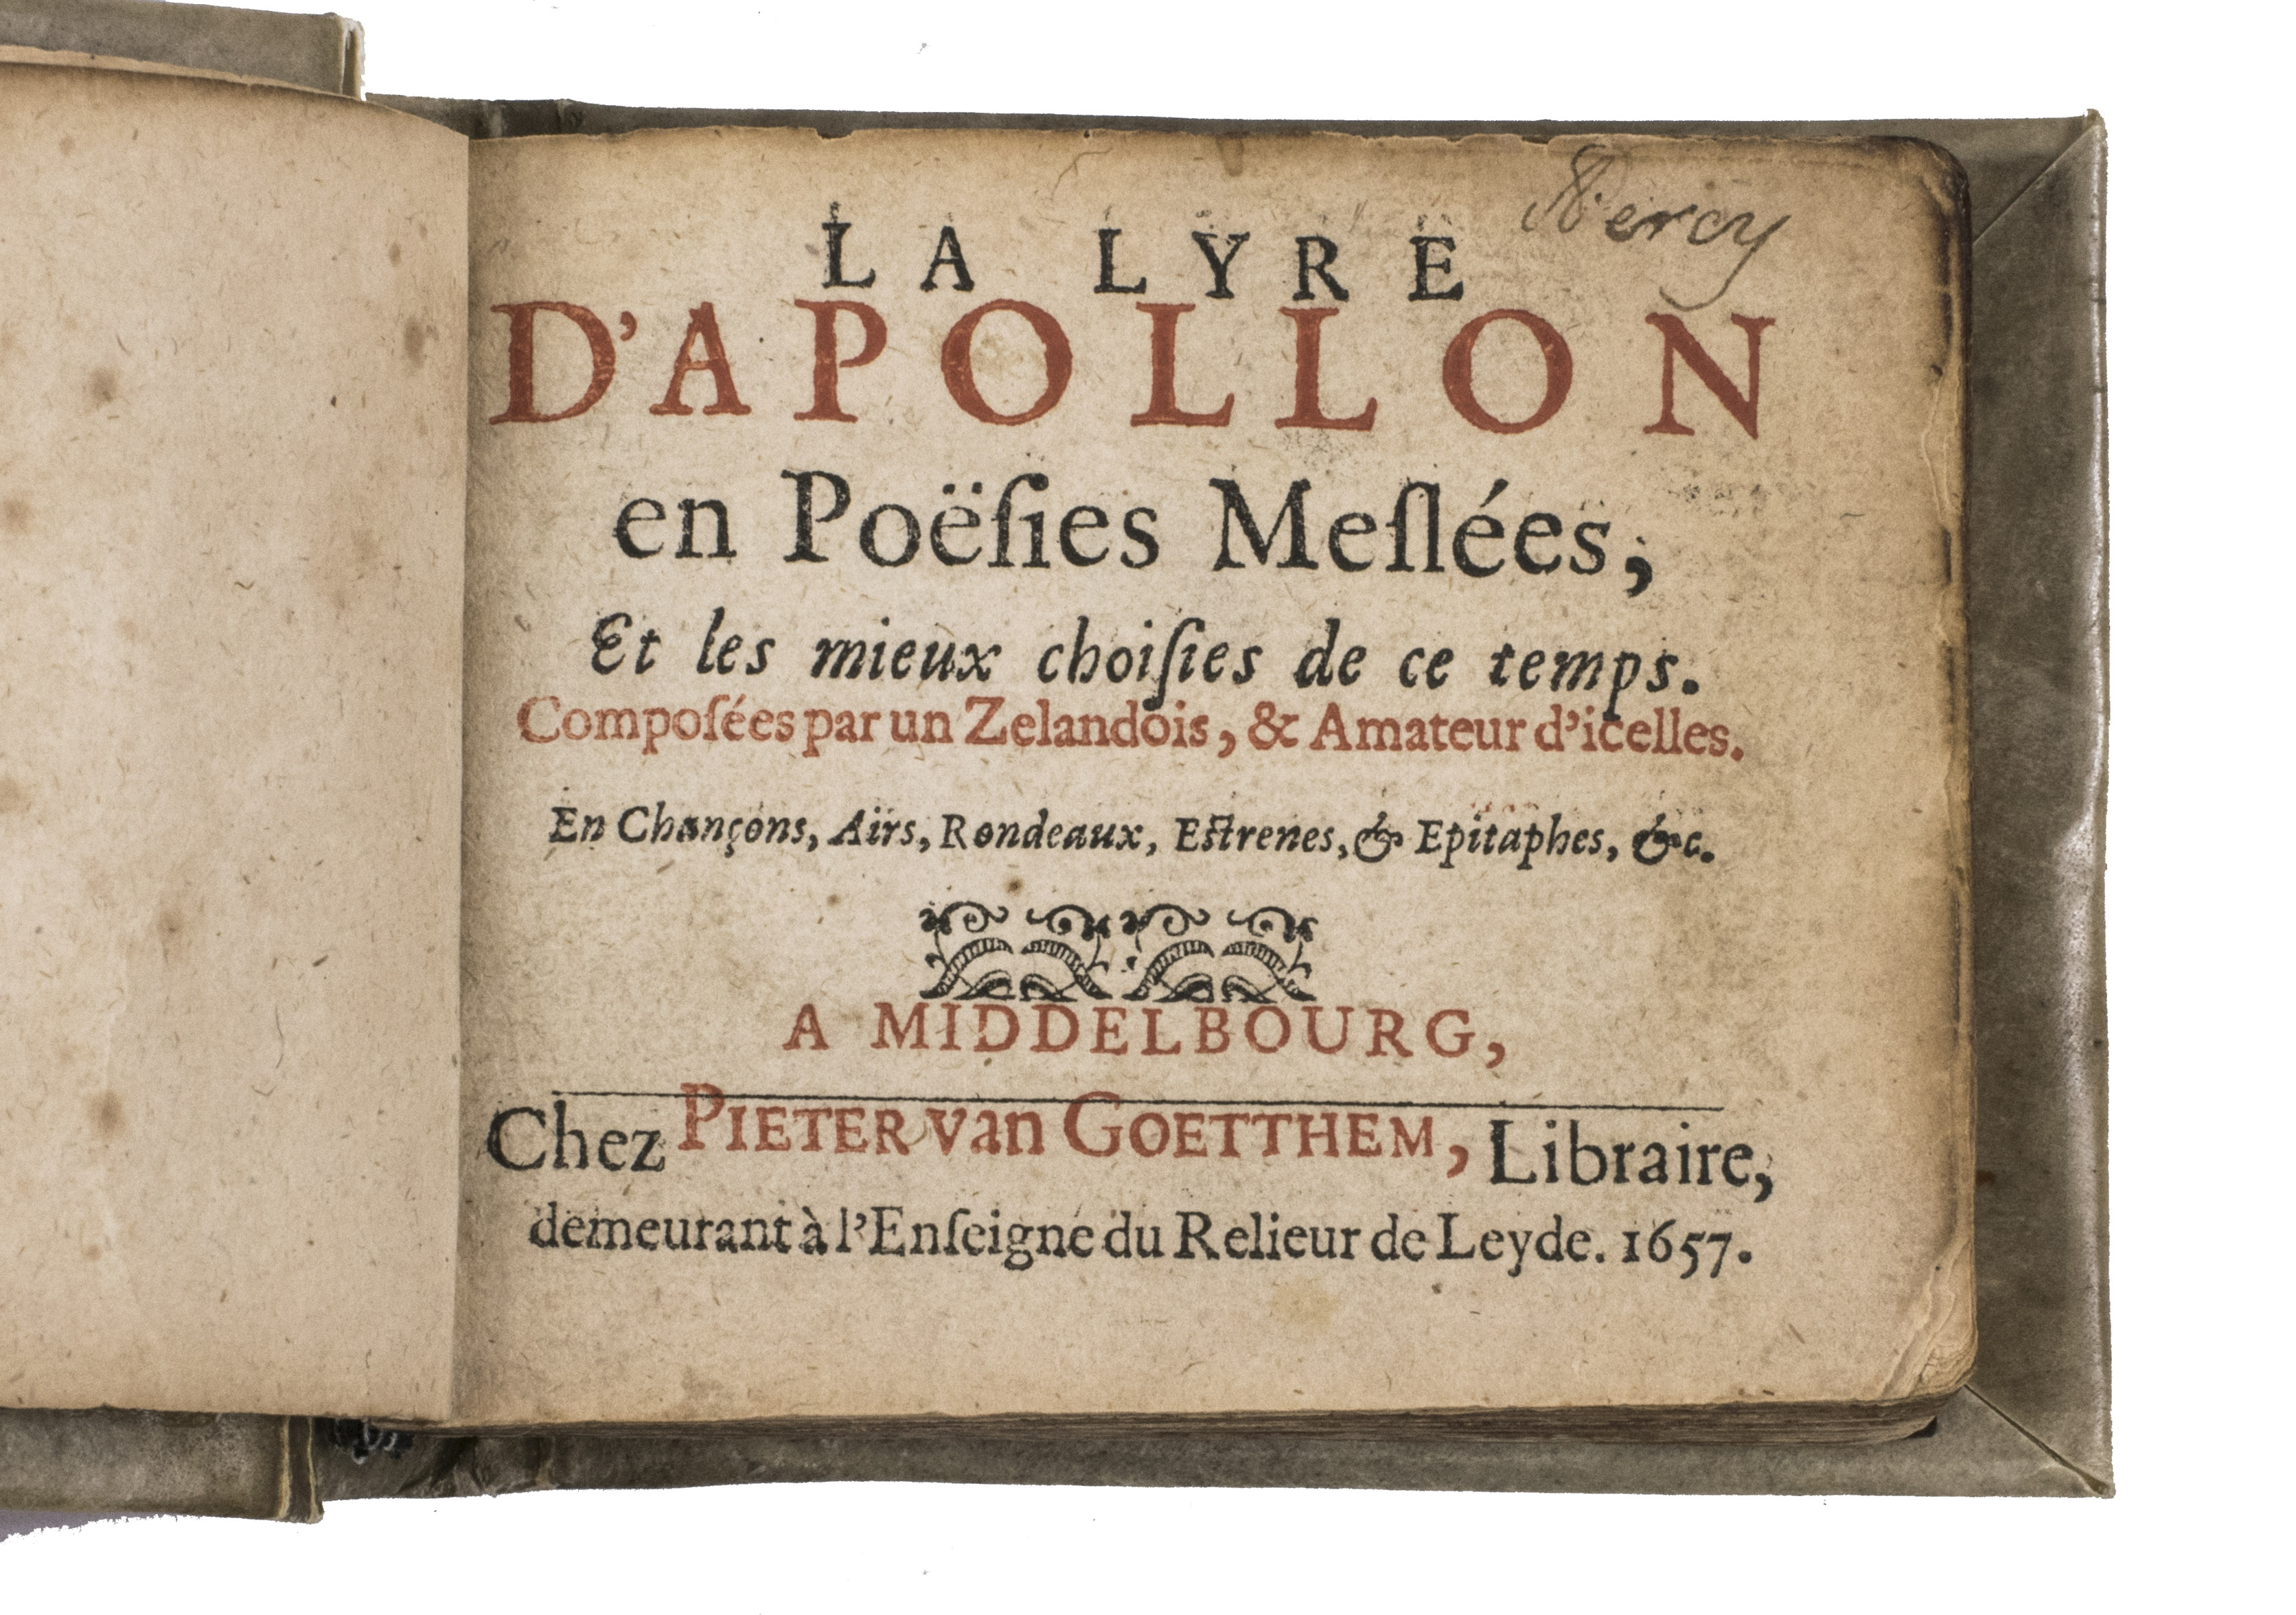 LA LYRE
D'APOLLON
en Poëſies Meſlées,
Et les mieux choiſies de ce temps.
Compoſées par un Zelandois, & Amateur d'icelles.
En Chançons, Airs, Rondeaux, Eſtrenes, & Epitaphes, &c.
A MIDDELBOURG,
Chez PIETER van GOETTHEM, Libraire,
demeurant à l'Enſeigne du Relieur de Leyde. 1657.